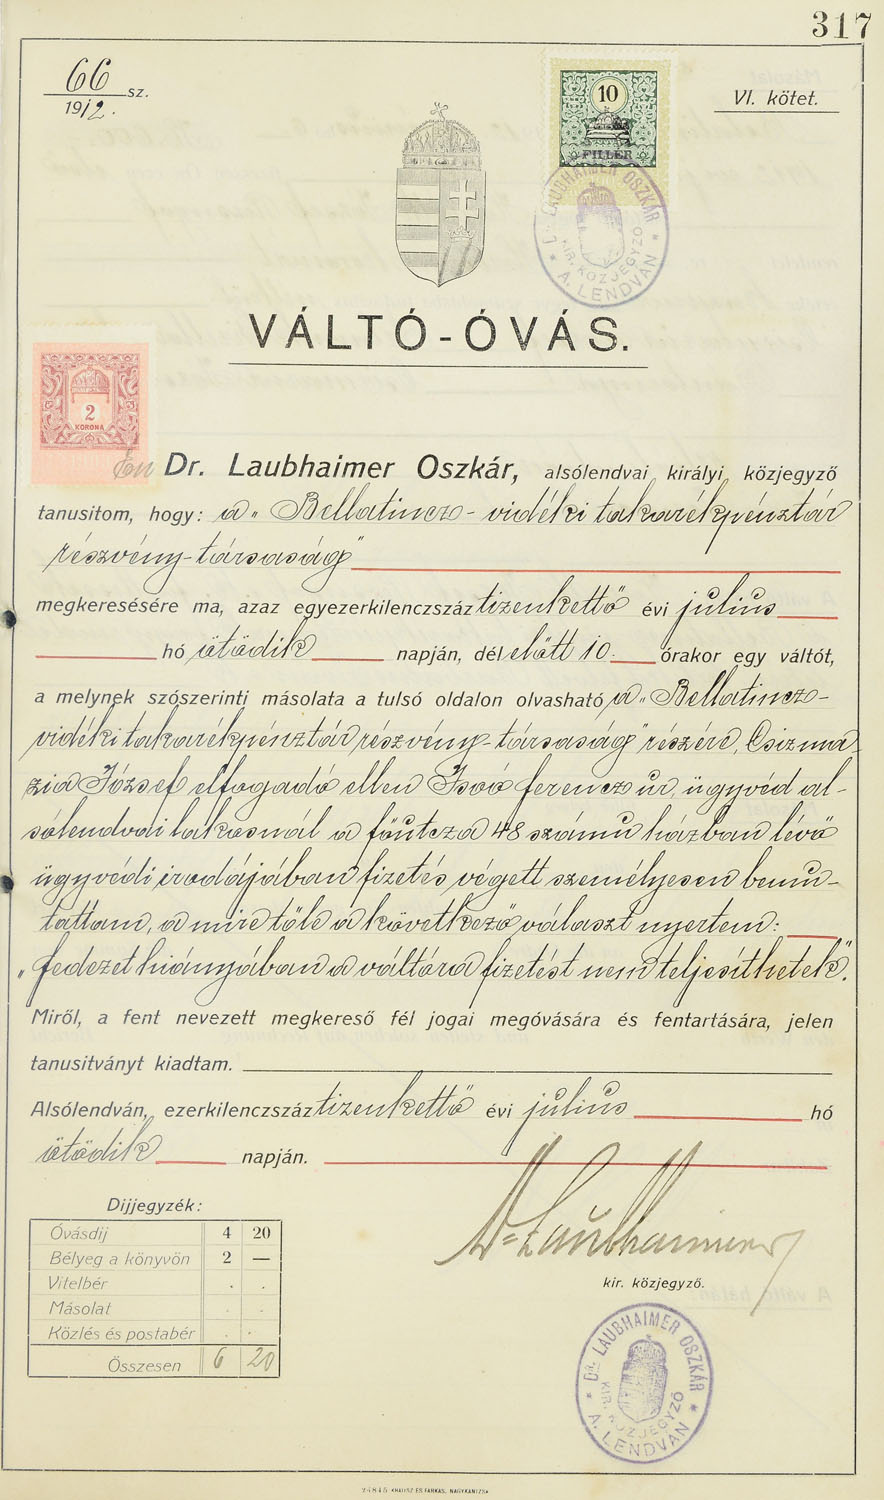 317
66 sz.
1912.
VI. kötet.
10
FILLÉR
Dr. LAUBHAIMER OSZKÁR
KIR. KÖZJEGYZŐ
* A. LENDVÁN *
VÁLTÓ-ÓVÁS.
2
KORONA
Én Dr. Laubhaimer Oszkár, alsólendvai királyi közjegyző
tanusitom, hogy: a „Bellatincz-vidéki takarékpénztár
részvény-társaság"
megkeresésére ma, azaz egyezerkilenczszáz tizenkettő évi július
hó ötödik napján, dél előtt 10 órakor egy váltót,
a melynek szószerinti másolata a tulsó oldalon olvasható a „Bellatincz-
vidéki takarékpénztár részvény-társaság" részére, Csizma-
zia József elfogadó ellen Isoó Ferencz ur, ügyvéd al-
sólendvai lakosnál a főutcza 48 számu házban lévő
ügyvédi irodájában fizetés végett személyesen bemu-
tattam, a mire tőle a következő választ nyertem:
„fedezet hiányában a váltóra fizetést nem teljesíthetek".
Miről, a fent nevezett megkereső fél jogai megóvására és fentartására, jelen
tanusitványt kiadtam.
Alsólendván, ezerkilenczszáz tizenkettő évi július hó
ötödik napján.
Dijjegyzék:
Óvásdij 4 20
Bélyeg a könyvön 2 —
Vitelbér . .
Másolat . .
Közlés és postabér . .
Összesen 6 20
Dr Laubhaimer
kir. közjegyző.
Dr. LAUBHAIMER OSZKÁR
KIR. KÖZJEGYZŐ
* A. LENDVÁN *
FARKAS, NAGYKANIZSA